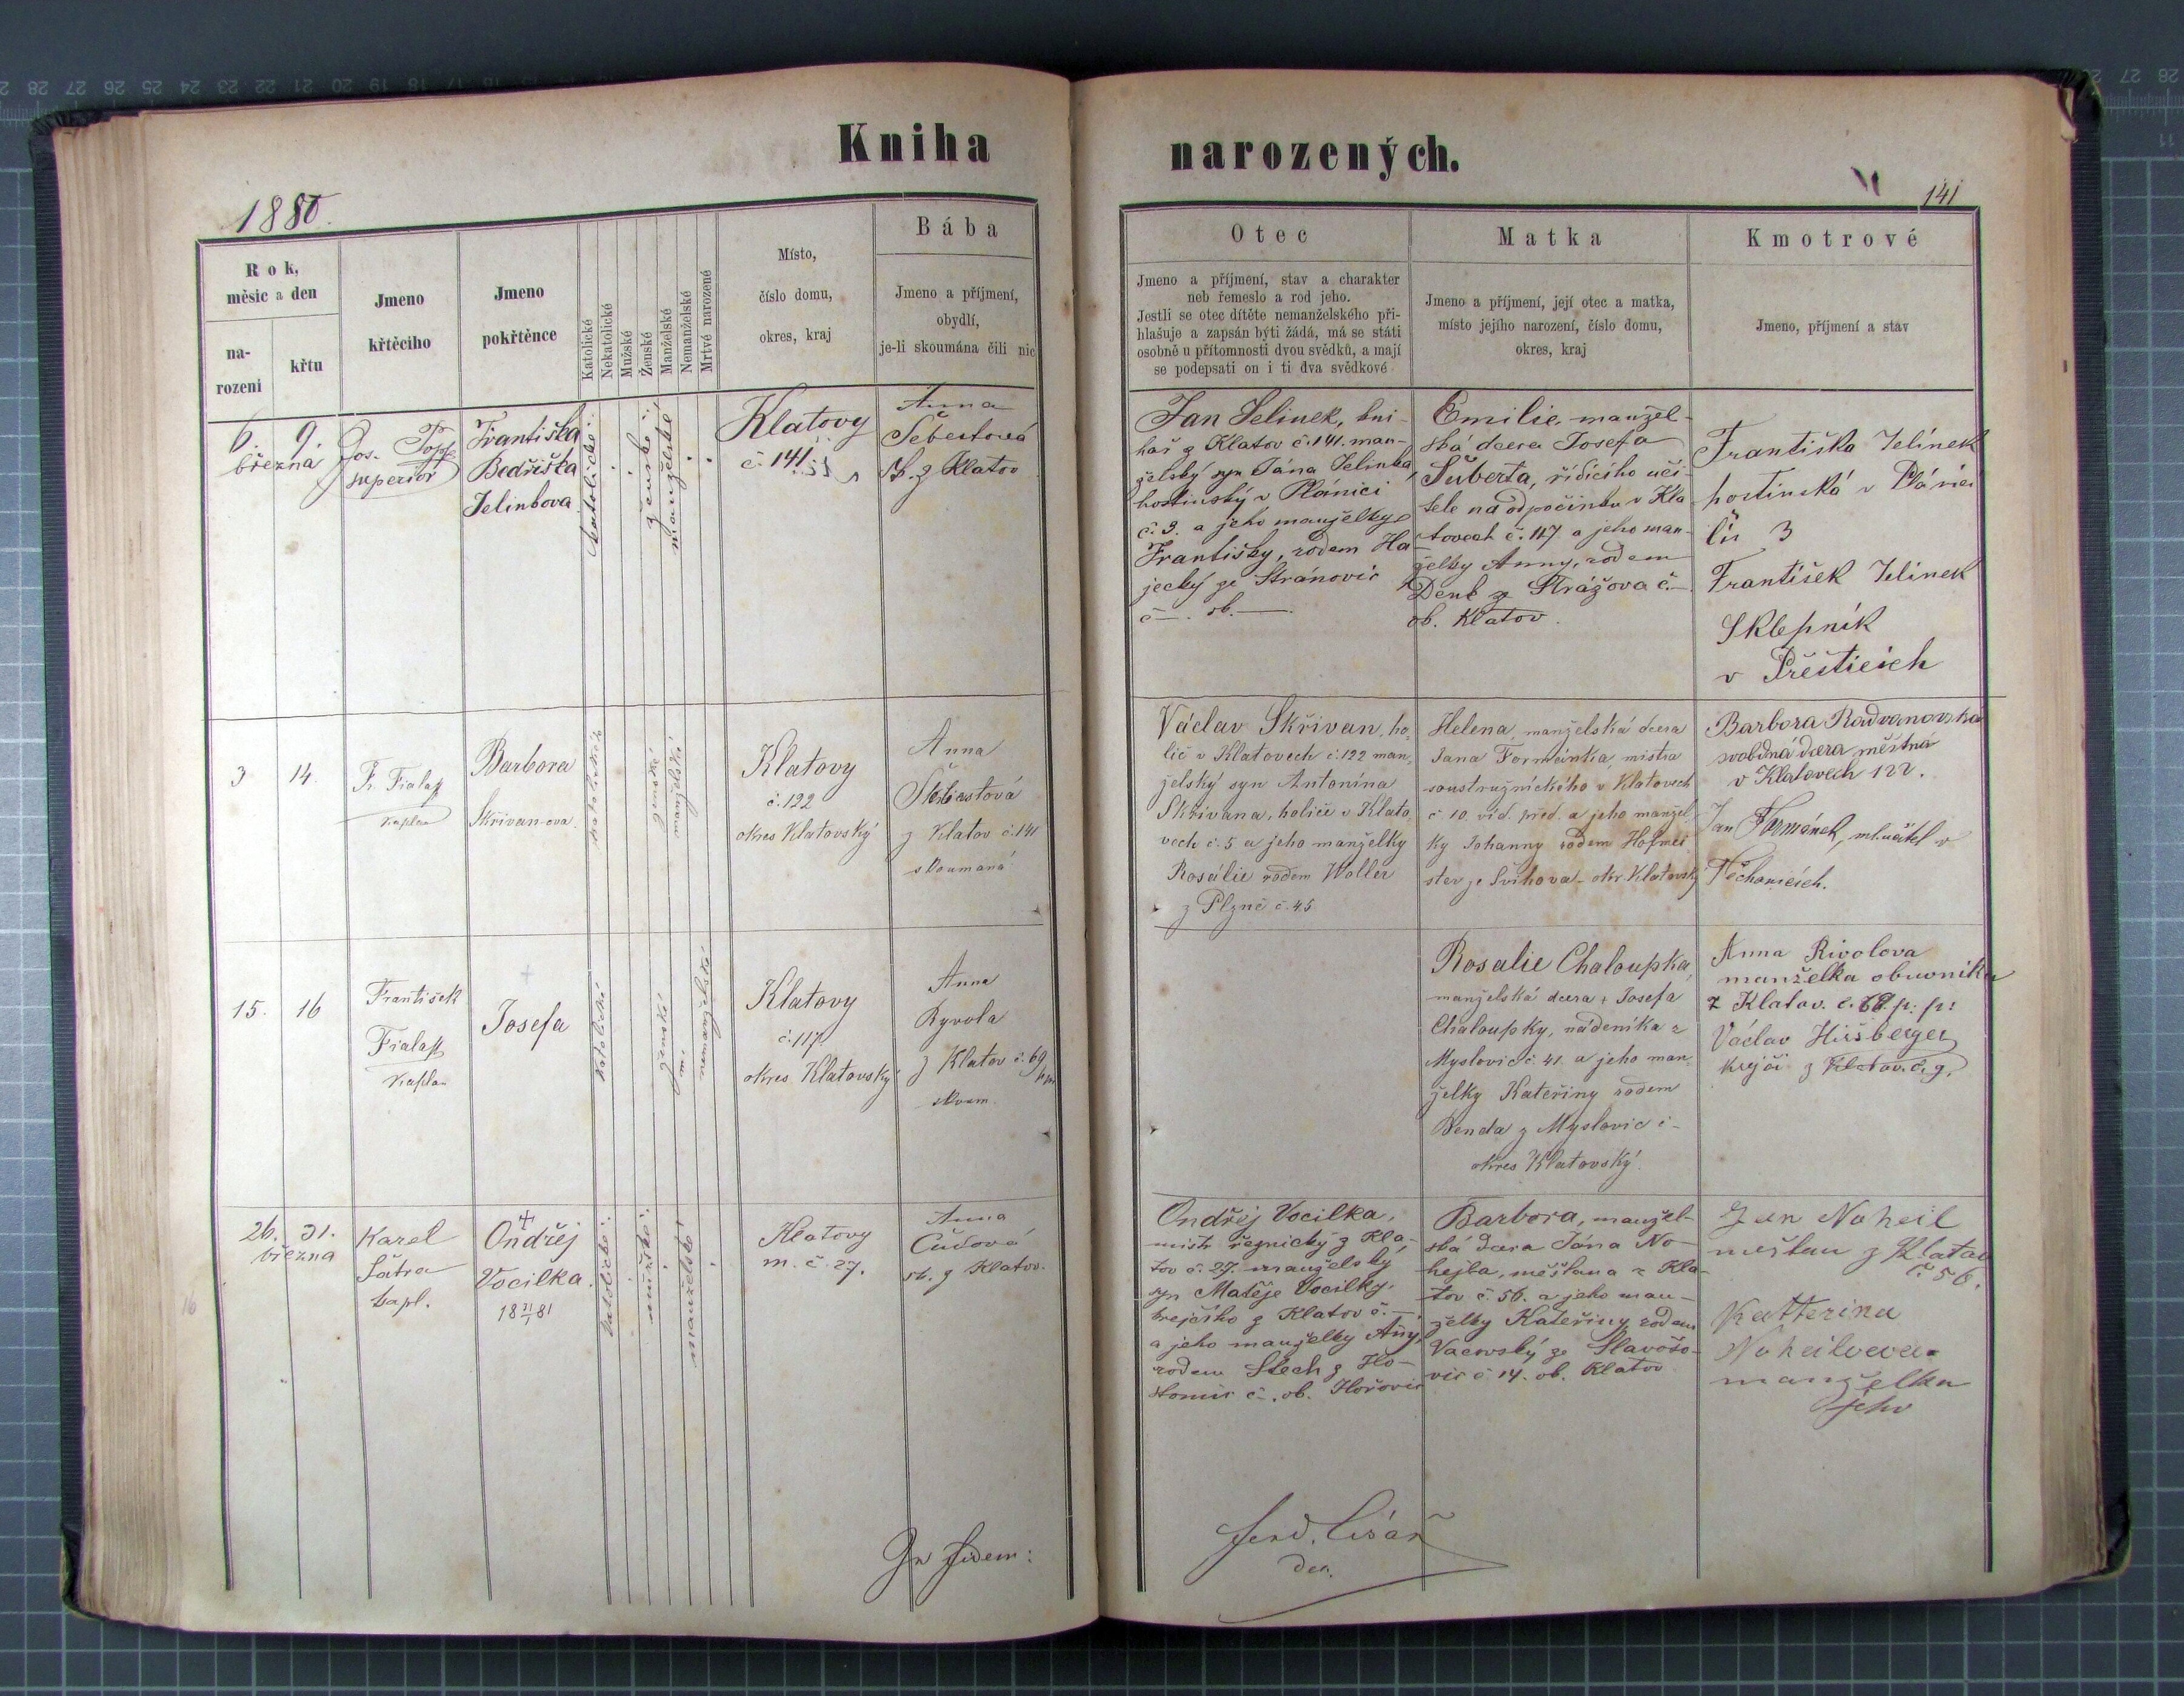 Kniha narozených.
1880.
141
Rok, měsic a den
na-
rozeni
křtu
Jmeno
křtěciho
Jmeno
pokřtěnce
Katolické
Nekatolické
Mužské
Ženské
Manželské
Nemanželské
Mrtvé narozené
Místo,
číslo domu,
okres, kraj
Bába
Jmeno a příjmení,
obydlí,
je-li skoumána čili nic
Otec
Jmeno a příjmení, stav a charakter
neb řemeslo a rod jeho.
Jestli se otec dítěte nemanželského při-
hlašuje a zapsán býti žádá, má se státi
osobně u přítomnosti dvou svědků, a mají
se podepsati on i ti dva svědkové
Matka
Jmeno a příjmení, její otec a matka,
místo jejího narození, číslo domu,
okres, kraj
Kmotrové
Jmeno, příjmení a stav
6. 9.
března
Jos.
superior
Františka
Bedřiška
Jelinkova
katolické
ženské
manželské
Klatovy
č. 141.
Anna
Šebestová
zk. z Klatov
Jan Jelinek, kni-
hař z Klatov č. 141. man-
želský syn Jána Jelinka,
hostinský v Plánici
č. 3. a jeho manželky
Františky, rodem Ha-
jecký ze Stránovic
č –. ob. –
Emilie, manžel-
ská dcera Josefa
Šuberta, řídícího uči-
tele na odpočinku v Kla-
tovech č. 117 a jeho man-
želky Anny, rodem
Denk ze Strážova č. –
ob. Klatov.
Františka Jelínek
hostinská v Plánici
čís 3
František Jelínek
Sklepník
v Přešticích
3 14.
Fr. Fiala
kaplan
Barbora
Skřivan-ova
katolické
ženské
manželské
Klatovy
č. 122
okres Klatovský
Anna
Šebestová
z Klatov č. 141
skoumaná
Václav Skřivan, ho-
lič v Klatovech č. 122 man-
želský syn Antonína
Skřivana, holiče v Klato-
vech č. 5 a jeho manželky
Rosálie rodem Woller
z Plzně č. 45
Helena, manželská dcera
Jana Formánka, mistra
soustružnického v Klatovech
č 10. víd. před. a jeho manžel-
ky Johanny rodem Hofmei
ster ze Švihova – okr. Klatovský
Barbora Radvanovska
svobdná dcera měštná
v Klatovech 122.
Jan Formánek, ml. učitel v
Nechanicích.
15. 16
František
Fiala
kaplan
Josefa
katolické
ženské
nemanželské
Klatovy
č. 117
okres Klatovský
Anna
Ryvola
z Klatov č. 69
skoum.
Rosalie Chaloupka,
manželská dcera + Josefa
Chaloupky, nádeníka z
Myslovic č. 41 a jeho man-
želky Kateřiny rodem
Benda z Myslovic č –
okres Klatovský.
Anna Rivolova
manželka obuvnika
z Klatov. č. 69. p: p:
Václav Hiršberger
krejči z Klatov. č. 9.
26. 31.
března
Karel
Šatra
kapl.
+
Ondřej
Vocilka.
18 31/1 81
katolické
mužské
manželské
Klatovy
m. č. 27.
Anna
Čudová
zk. z Klatov.
Ondřej Vocilka,
mistr řeznický z Kla-
tov č. 27. manželský
syn Matěje Vocilky,
krejčího z Klatov č. –
a jeho manželky Aňy,
rodem Štech z Ho-
stomic č –. ob. Hořovic
Barbora, manžel-
ská dcera Jána No-
hejla, měšťana z Kla-
tov č. 56. a jeho man-
želky Kateřiny, rodem
Vacovský ze Slavošo-
vic č 14. ob. Klatov
Jan Noheil
meštan z Klatov
č 56.
Katterina
Noheilova
manželka
jeho
In fidem:
Ferd. Cisař
děk.